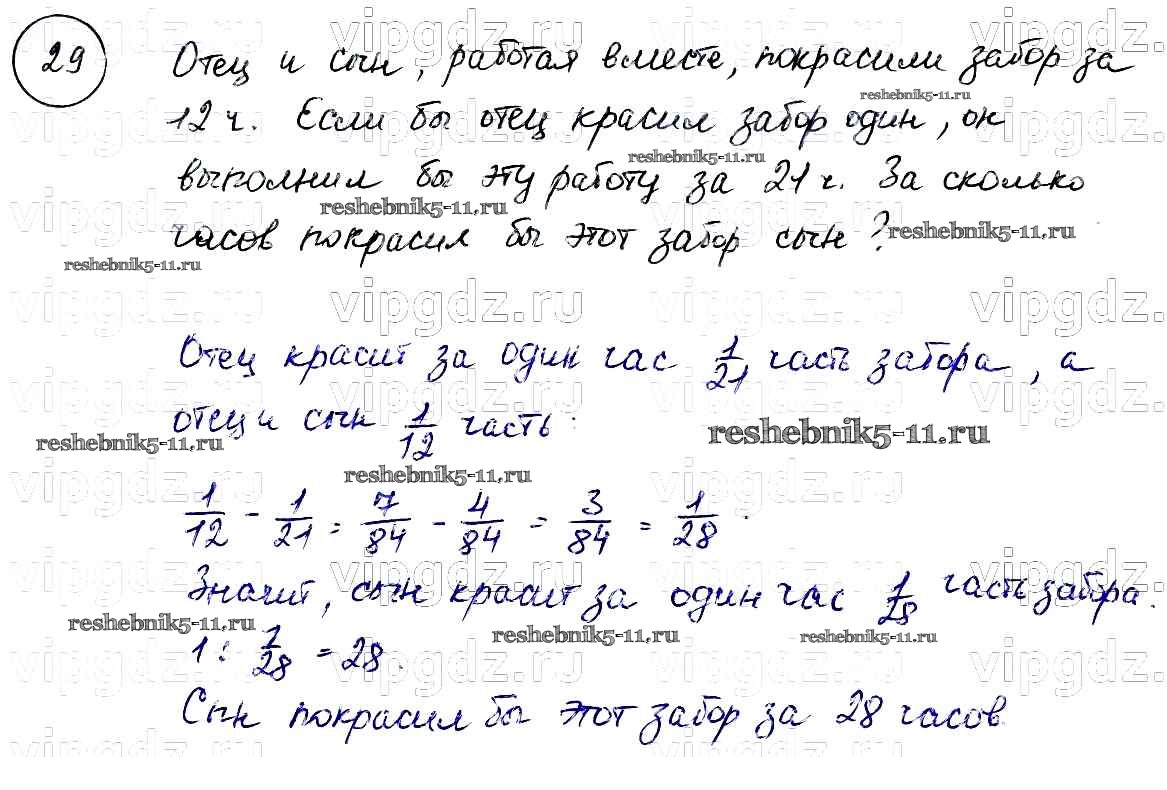 29 Отец и сын, работая вместе, покрасили забор за
12 ч. Если бы отец красил забор один, он
выполнил бы эту работу за 21 ч. За сколько
часов покрасил бы этот забор сын?
Отец красит за один час 1/21 часть забора, а
отец и сын 1/12 часть.
1/12 - 1/21 = 7/84 - 4/84 = 3/84 = 1/28.
Значит, сын красит за один час 1/28 часть забора.
1 : 1/28 = 28.
Сын покрасил бы этот забор за 28 часов
vipgdz.ru
reshebnik5-11.ru